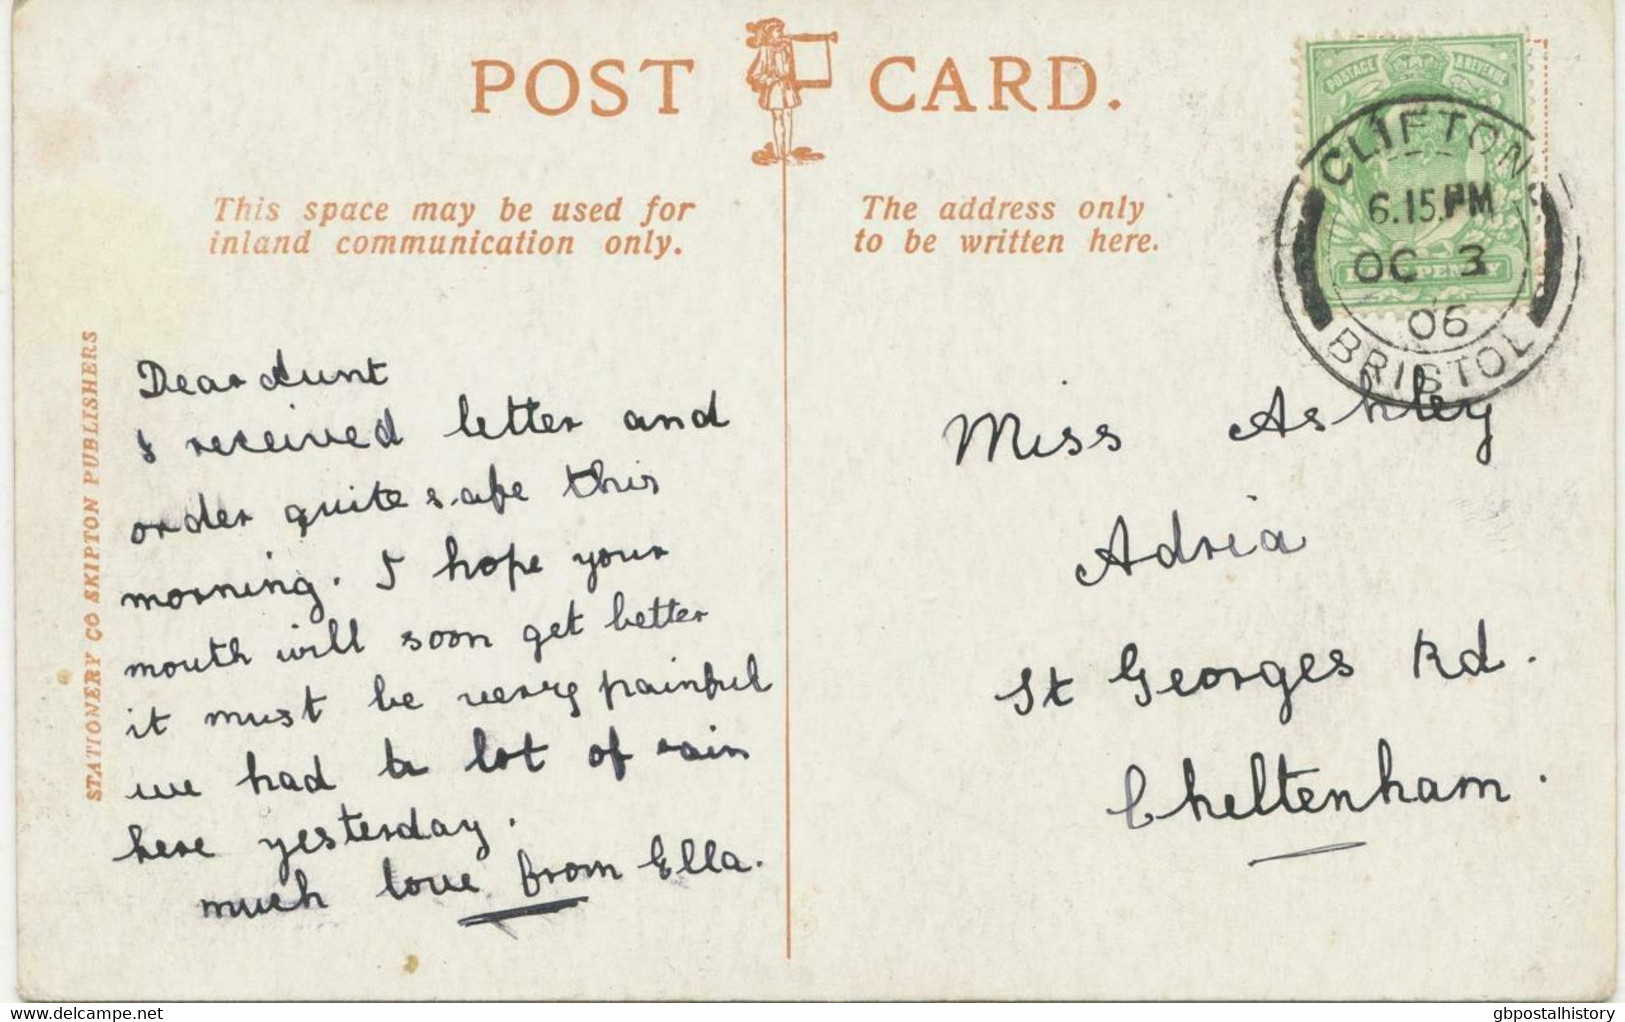 POST CARD.
This space may be used for
inland communication only.
The address only
to be written here.
POSTAGE & REVENUE
CLIFTON
6.15.PM
OC 3
06
BRISTOL
STATIONERY CO SKIPTON PUBLISHERS
Dear Aunt
I received letter and
order quite safe this
morning. I hope your
mouth will soon get better
it must be very painful
we had a lot of rain
here yesterday.
much love from Ella.
Miss Ashley
Adria
St Georges Rd.
Cheltenham.
delcampe.net
gbpostalhistory